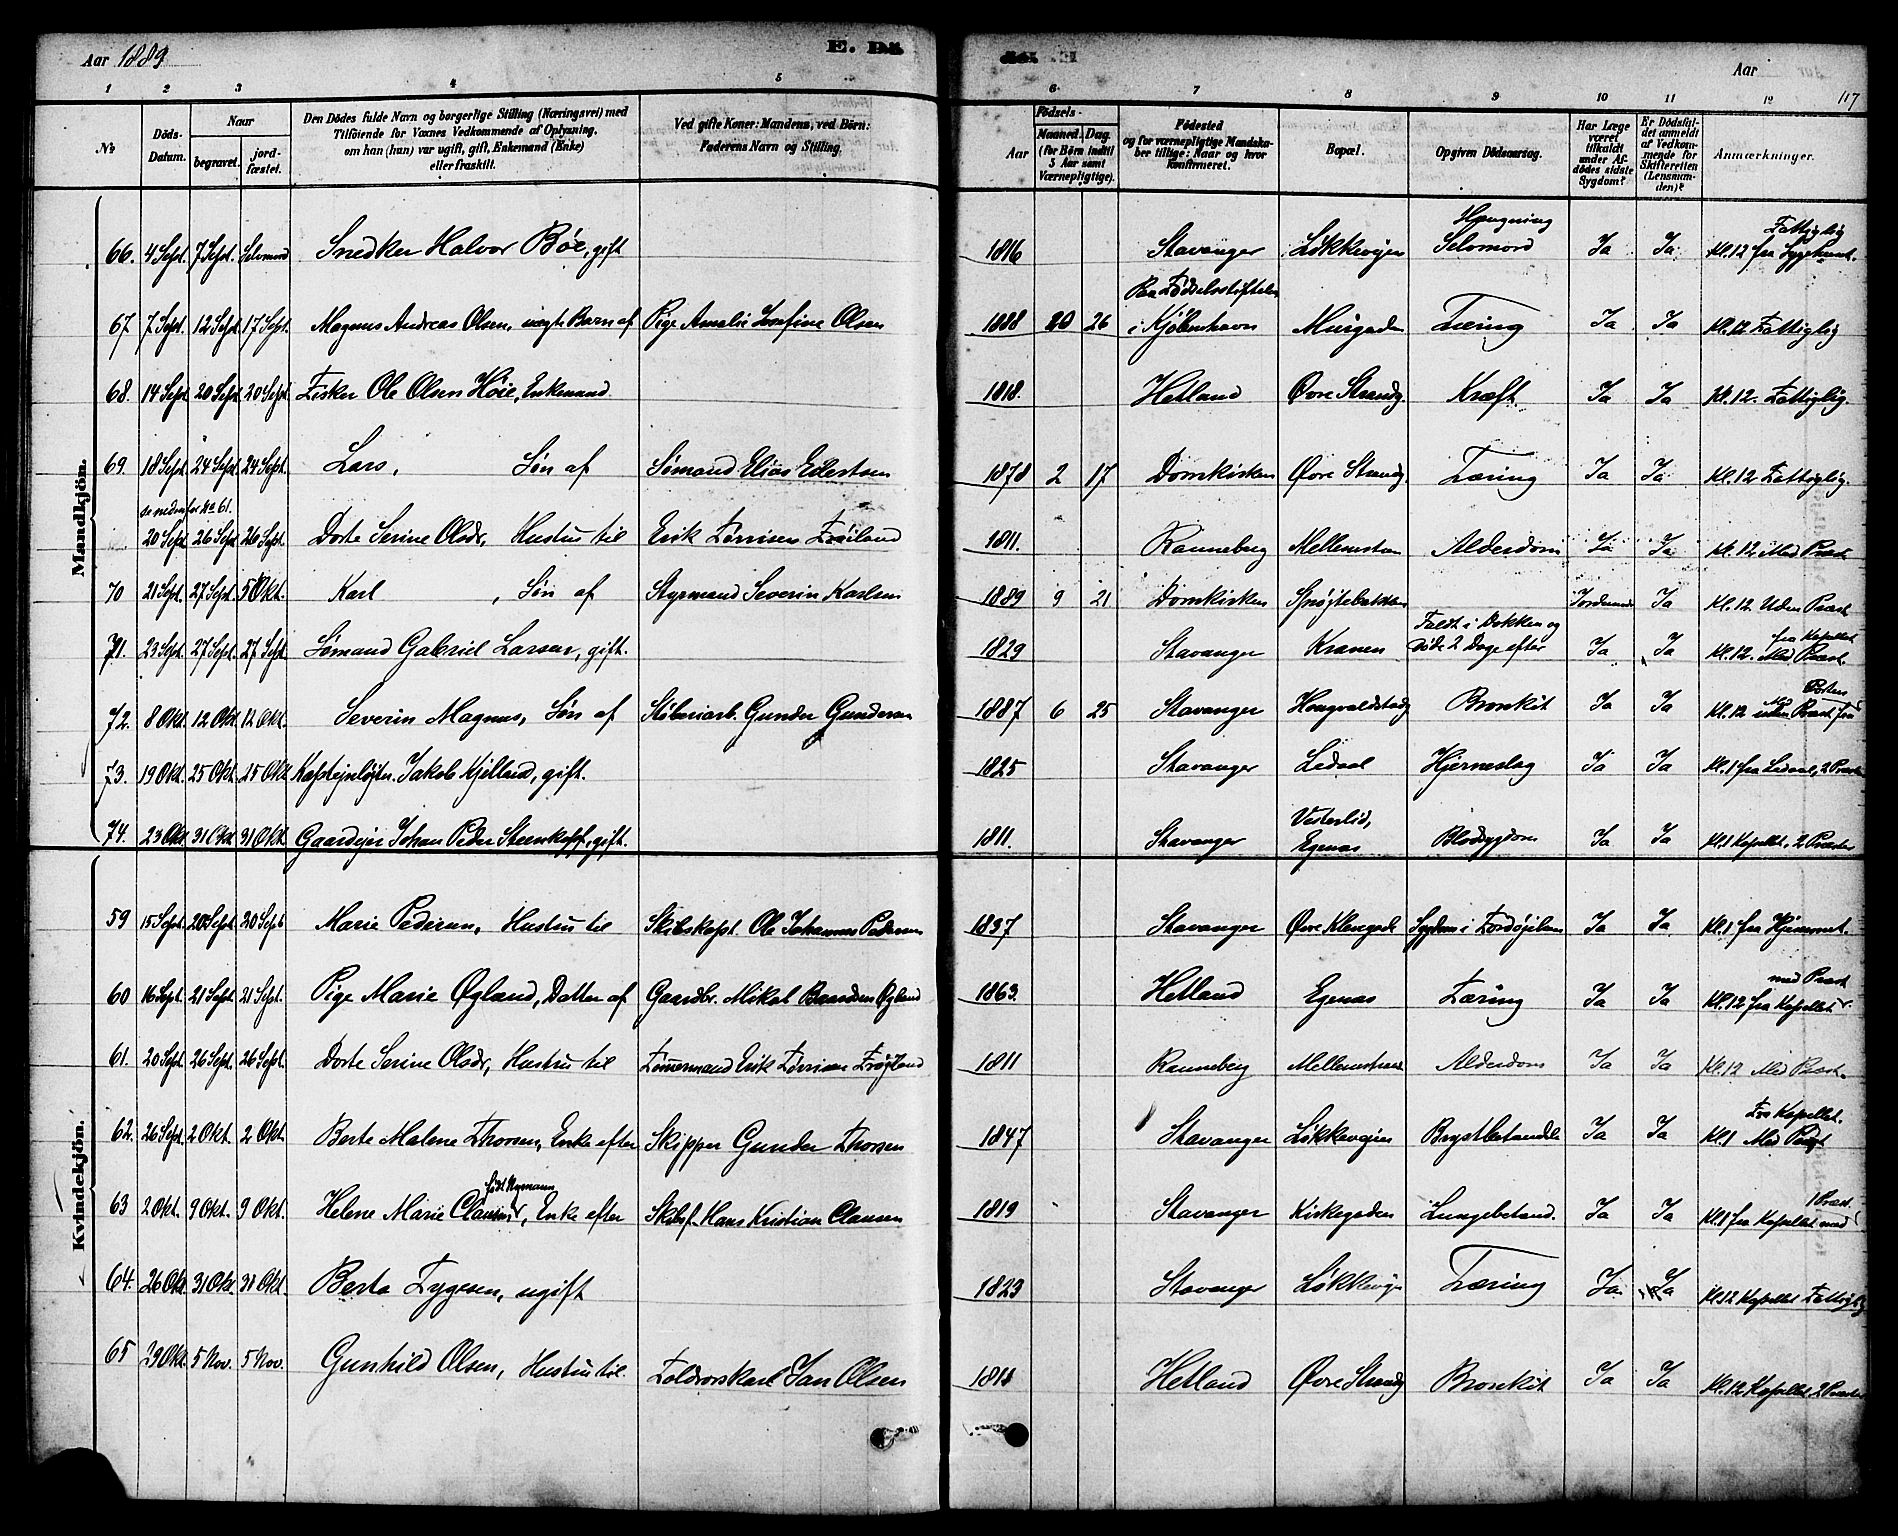 Aar 1889
E. Dö
Aar
117
1 2 3 4 5 6 7 8 9 10 11 12
No
Döds-Datum.
Naar
begravet.
jord-fæstet.
Den Dödes fulde Navn og borgerlige Stilling (Næringsvei) med
Tilföiende for Voxnes Vedkommende af Oplysning,
om han (hun) var ugift, gift, Enkemand (Enke)
eller fraskilt.
Ved gifte Koner: Mandens, ved Börn:
Faderens Navn og Stilling.
Aar
Födsels-
Maaned. Dag.
(for Börn indtil
5 Aar samt
Værnepligtige).
Födested
og for værnepligtige Mandska-
ber tillige: Naar og hvor
konfirmeret.
Bopæl.
Opgiven Dödsaarsag.
Har Læge
været
tilkaldt
under Af-
dödes sidste
Sygdom?
Er Dödsfal-
det anmeldt
af Vedkom-
mende for
Skifteretten
(Lensman-
den)?
Anmærkninger.
Mandkjön.
66. 4 Sept. 7 Sept. Selvmord Snedker Halvor Bøe, gift 1816 Stavanger Løkkevejen Hængning Selvmord Ja Ja Fattiglig Kl. 12 fra Sygehuset.
67 7 Sept. 12 Sept. 17 Sept. Magnus Andreas Olsen, uægte Barn af Pige Amalie Josefine Olsen 1888 10 26 Paa Fødselsstiftelsen i Kjøbenhavn Muirgaden Tæring Ja Ja Kl. 12 Fattiglig
68. 14 Sept 20 Sept 20 Sept. Fisker Ole Olsen Høie, Enkemand 1818. Hetland Øvre Strandg. Kræft. Ja Ja Kl. 12. Fattiglig.
69. 18 Sept. 24 Sept. 24 Sept. Lars, Søn af Sømand Elias Edertsen 1878 2 17 Domkirken Øvre Strandg. Tæring Ja Ja Kl. 12 Fattiglig.
se nedenfor No 61.
20 Sept 26 Sept 26 Sept. Dorte Serine Olsdr, Hustru til Erik Tørrisen Frøiland 1811. Ranneberg Mellemstraen Alderdom Ja Ja Kl. 12 Med Præst
70 21 Sept. 27 Sept. 5 Okt. Karl, Søn af Styrmand Severin Karlsen 1889 9 21 Domkirken Sprøjtebakken Jordemoder Ja Kl. 12 Uden Præst
71. 23 Sept. 27 Sept. 27 Sept. Sømand Gabriel Larsen, gift. 1829 Stavanger Kranen Faldt i Dokken og døde 2 Dage efter Ja Ja fra Kapellet Kl. 12. Med Præst.
72. 8 Okt. 12 Okt. 12 Okt. Severin Magnus, Søn af Støberiarb. Gunder Gundersen 1887 6 25 Stavanger Hougvaldstadg Bronkit Ja Ja Kl. 12 uden Med Præst fra Porten
73. 19 Okt. 25 Okt. 25 Okt. Kaptejnløjtn. Jakob Kjelland, gift. 1825 Stavanger Ledaal Hjerneslag Ja Ja Kl. 1 fra Ledaal, 2 Præster
74. 23 Okt 31 Okt 31 Okt. Gaardejer Johan Peder Steenkopf, gift. 1811. Stavanger Vesterlid, Egenæs Blodsygdom Ja Ja Kl. 1 Kapellet. 2 Præster
Kvindekjön.
59 15 Sept. 20 Sept. 20 Sept Marie Pedersen, Hustru til Skibskapt. Ole Johannes Pedersen 1837 Stavanger Øvre Klevgade Sygdom i Fordøjelsen Ja Ja Kl. 1 fra Hjemmet.
60 16 Sept. 21 Sept. 21 Sept. Pige Marie Øgland, Datter af Gaardbr. Mikal Baardsen Øgland 1863. Hetland Egenæs Tæring Ja Ja med Præst Kl. 12 fra Kapellet
61. 20 Sept. 26 Sept. 26 Sept. Dorte Serine Olsdr, Hustru til Tømmermand Erik Tørrisen Frøjland 1811 Ranneberg Mellemstraen Alderdom Ja Ja Kl. 12 Med Præst.
62. 26 Sept. 2 Okt. 2 Okt Berte Malene Thorsen, Enke efter Skipper Gunder Thorsen 1847 Stavanger Løkkevejen Brystbetændelse Ja Ja Fra Kapellet. Kl. 1 Med Præst
63 2 Okt. 9 Okt. 9 Okt. Helene Marie Clausen, født Nymann Enke efter Skibsf. Hans Kristian Clausen 1819 Stavanger Kirkegaden Lungebetænd. Ja Ja Kl. 1 fra Kapellet med 1 Præst.
64. 26 Okt 31 Okt. 31 Okt. Berta Tygesen, ugift 1823 Stavanger Løkkevejen Tæring Ja Ja Kl. 12 Kapellet Fattiglig
65 29 Okt. 5 Nov. 5 Nov. Gunhild Olsen, Hustru til Toldvorskarl Jan Olsen 1811 Hetland Øvre Strandg Bronkit Ja Ja Kl. 12 Kapellet, 2 Præster